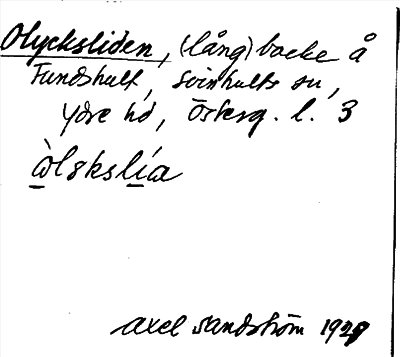 Olycksliden, (lång) backe å
Fundshult, Svinhults sn,
Ydre hd, Österg. l. 3
òlskslía
Axel Sandström 1929